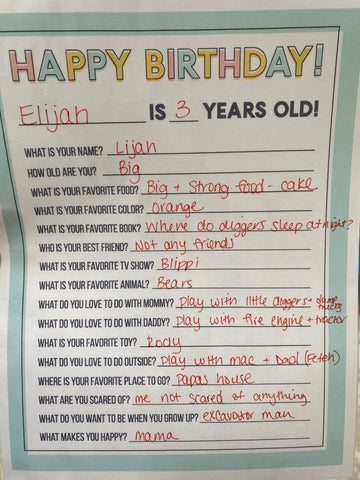 HAPPY BIRTHDAY!
Elijah IS 3 YEARS OLD!
WHAT IS YOUR NAME? Lijah
HOW OLD ARE YOU? Big
WHAT IS YOUR FAVORITE FOOD? Big + Strong food - cake
WHAT IS YOUR FAVORITE COLOR? Orange
WHAT IS YOUR FAVORITE BOOK? Where do diggers sleep at night?
WHO IS YOUR BEST FRIEND? Not any friends
WHAT IS YOUR FAVORITE TV SHOW? Blippi
WHAT IS YOUR FAVORITE ANIMAL? Bears
WHAT DO YOU LOVE TO DO WITH MOMMY? play with little diggers + dump trucks
WHAT DO YOU LOVE TO DO WITH DADDY? play with fire engine + tractor
WHAT IS YOUR FAVORITE TOY? Rody
WHAT DO YOU LOVE TO DO OUTSIDE? play with mac + Dad (Fetch)
WHERE IS YOUR FAVORITE PLACE TO GO? Papas house
WHAT ARE YOU SCARED OF? me not scared of anything
WHAT DO YOU WANT TO BE WHEN YOU GROW UP? excavator man
WHAT MAKES YOU HAPPY? mama